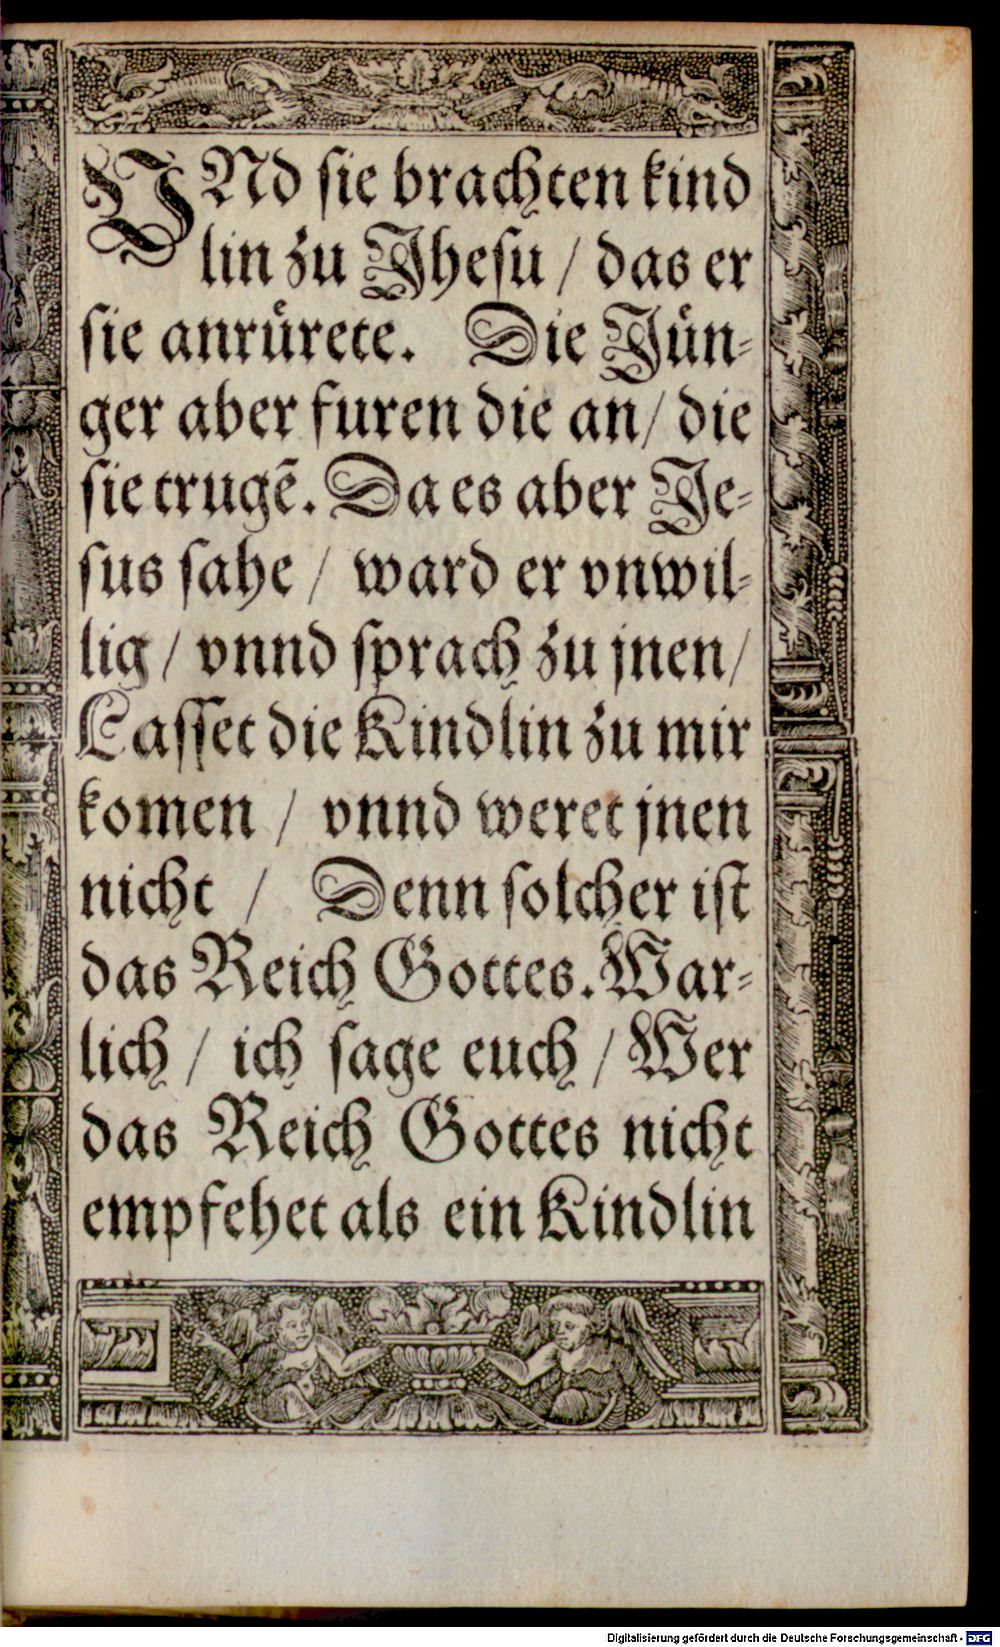 VNd ſie brachten kind
lin zu Jheſu / das er
ſie anruͤrete. Die Juͤn-
ger aber furen die an/ die
ſie trugē. Da es aber Je-
ſus ſahe / ward er vnwil-
lig / vnnd ſprach zu jnen/
Laſſet die Kindlin zu mir
komen / vnnd weret jnen
nicht / Denn ſolcher iſt
das Reich Gottes. War-
lich / ich ſage euch / Wer
das Reich Gottes nicht
empfehet als ein Kindlin
Digitalisierung gefördert durch die Deutsche Forschungsgemeinschaft - DFG